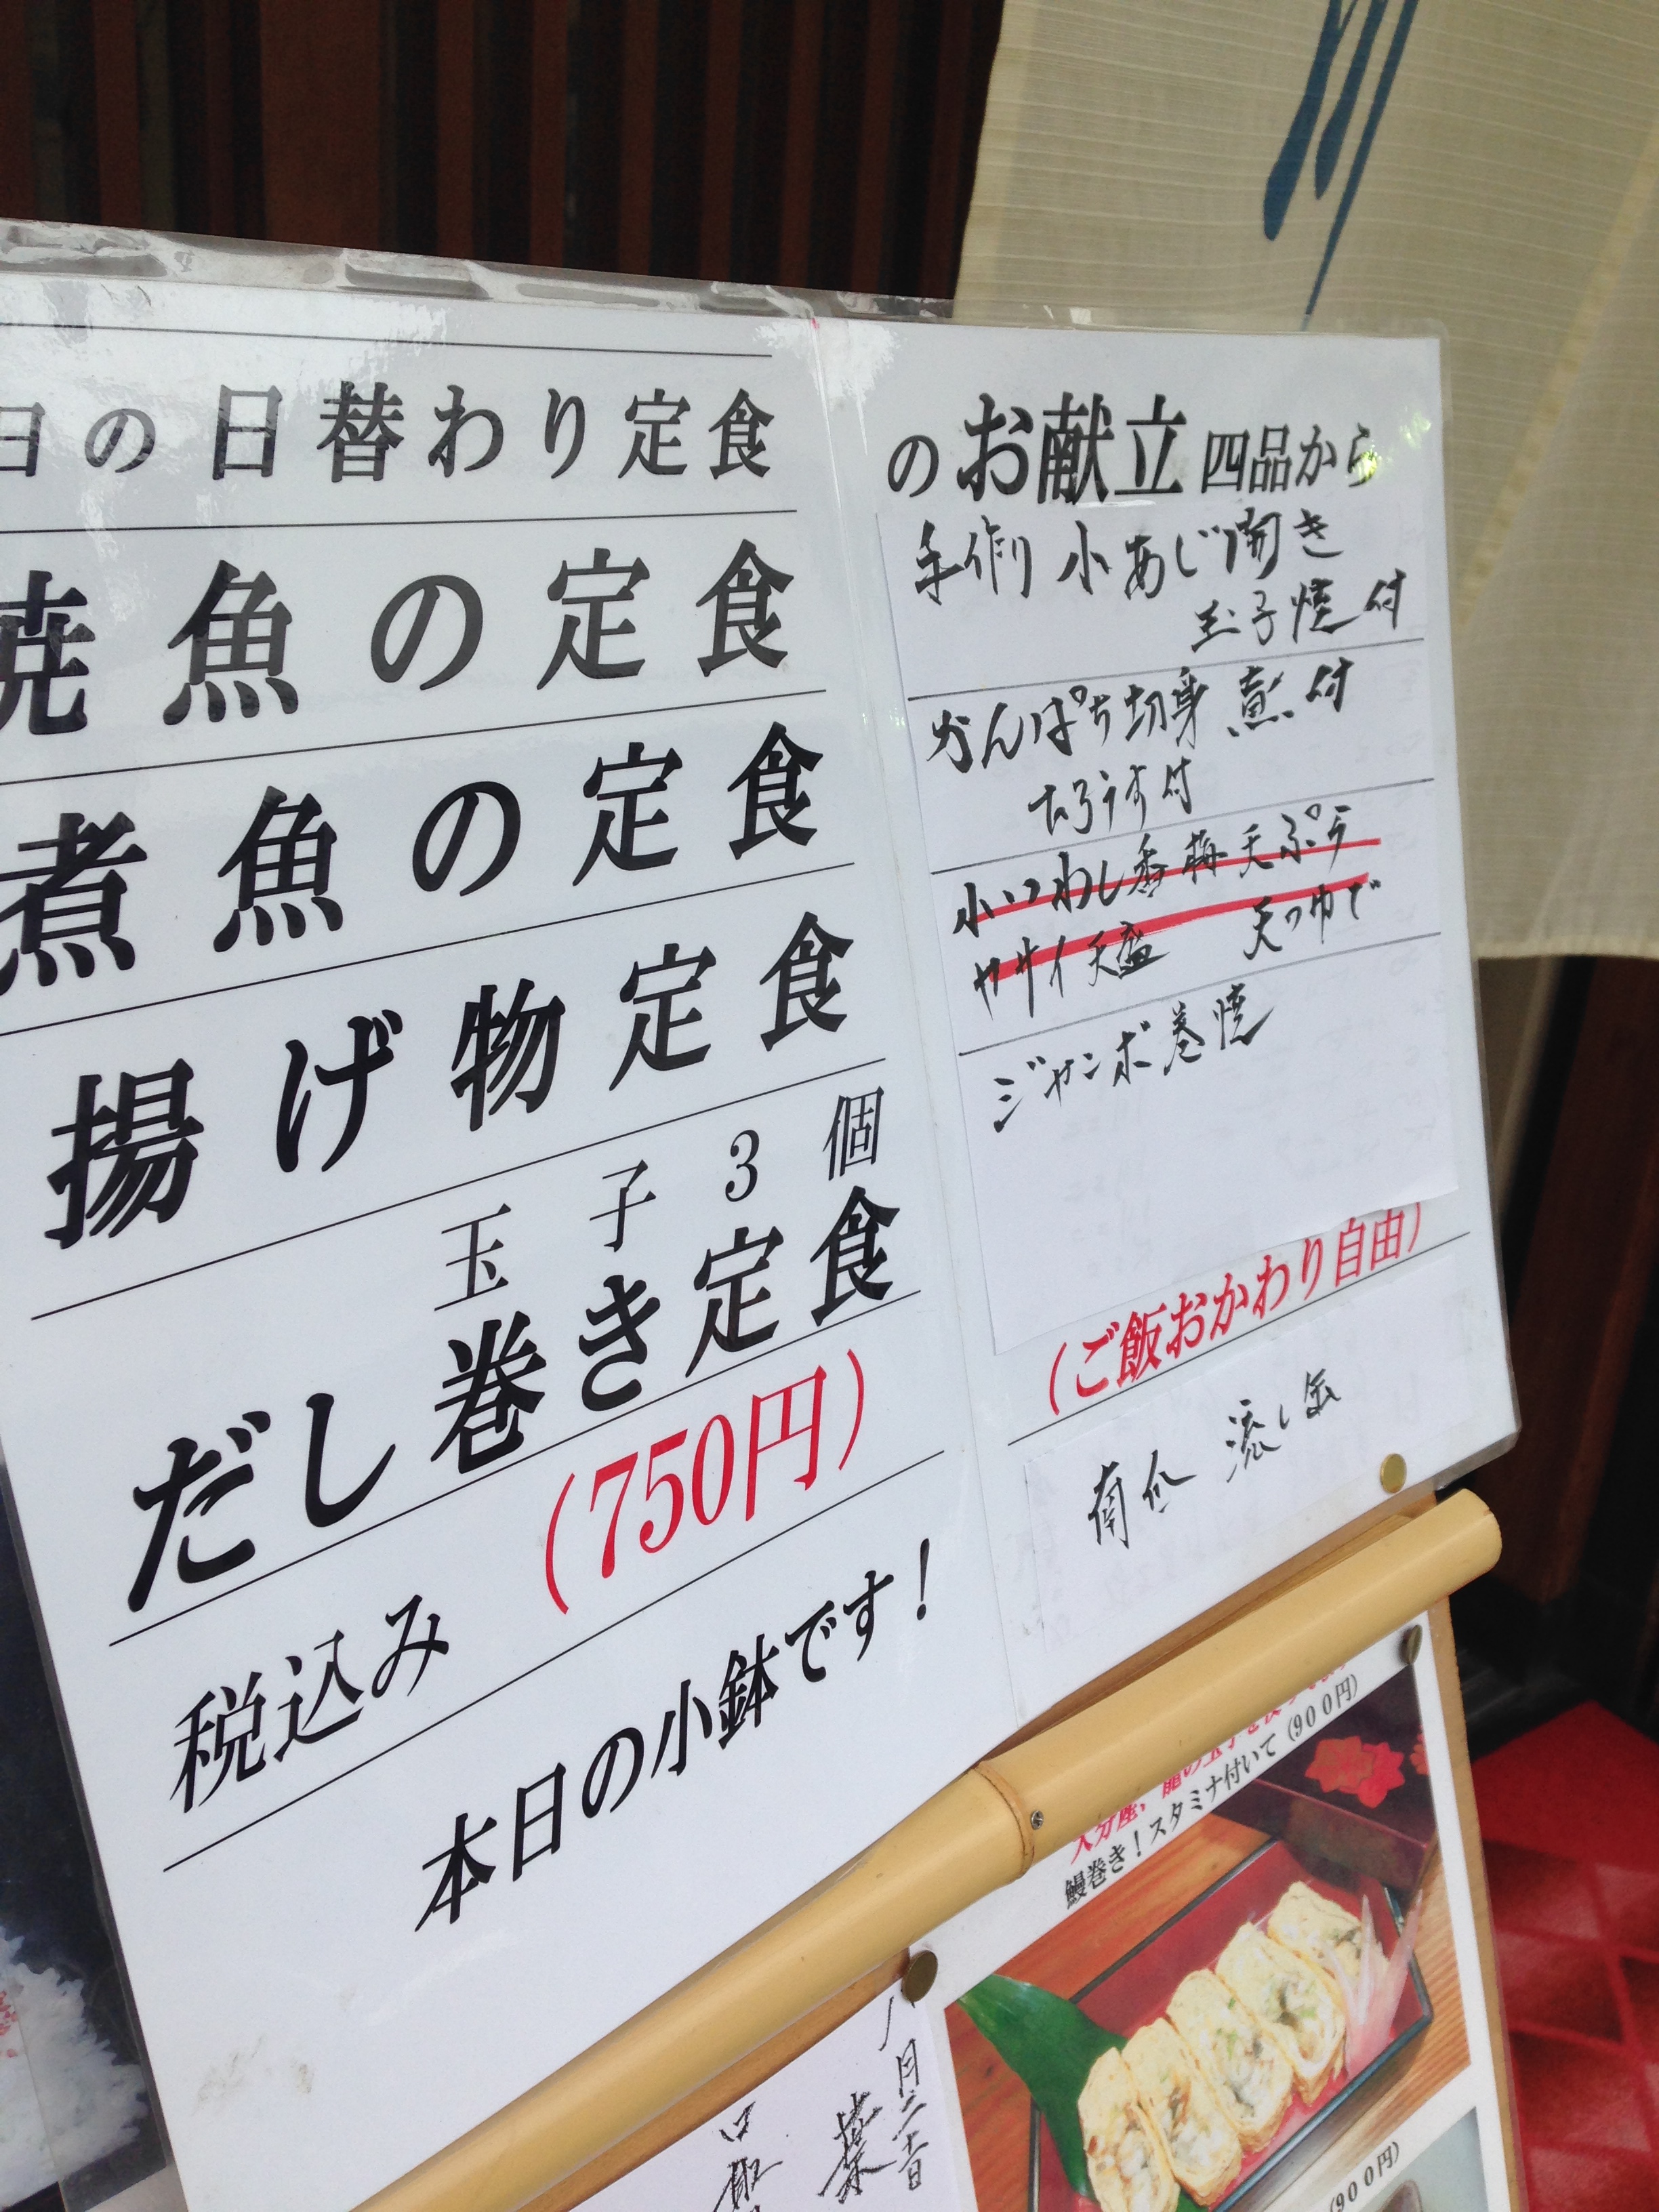 日の日替わり定食
のお献立 四品から
焼魚の定食
手作り 小あじ開き
玉子焼付
煮魚の定食
かんぱち切身 煮付
揚げ物定食
小いわし香梅天ぷら
ヤサイ天盛 天つゆで
玉子3個
だし巻き定食
ジャンボ巻焼
税込み (750円)
(ご飯おかわり自由)
本日の小鉢です!
南瓜 流し缶
鰻巻き!スタミナ付いて(900円)
(900円)